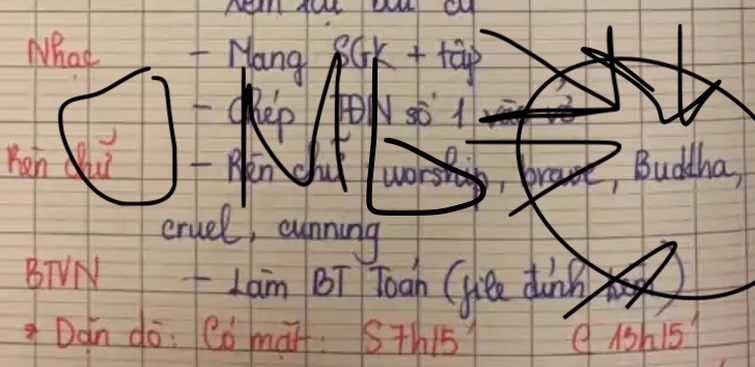 Xem lại bài cũ
Nhạc - Mang SGK + tập
- Chép TĐN số 1
Rèn chữ - Rèn chữ worship, brave, Buddha,
cruel, cunning
BTVN - Làm BT Toán (file đính
* Dặn dò: Có mặt: S 7h15' C 13h15'